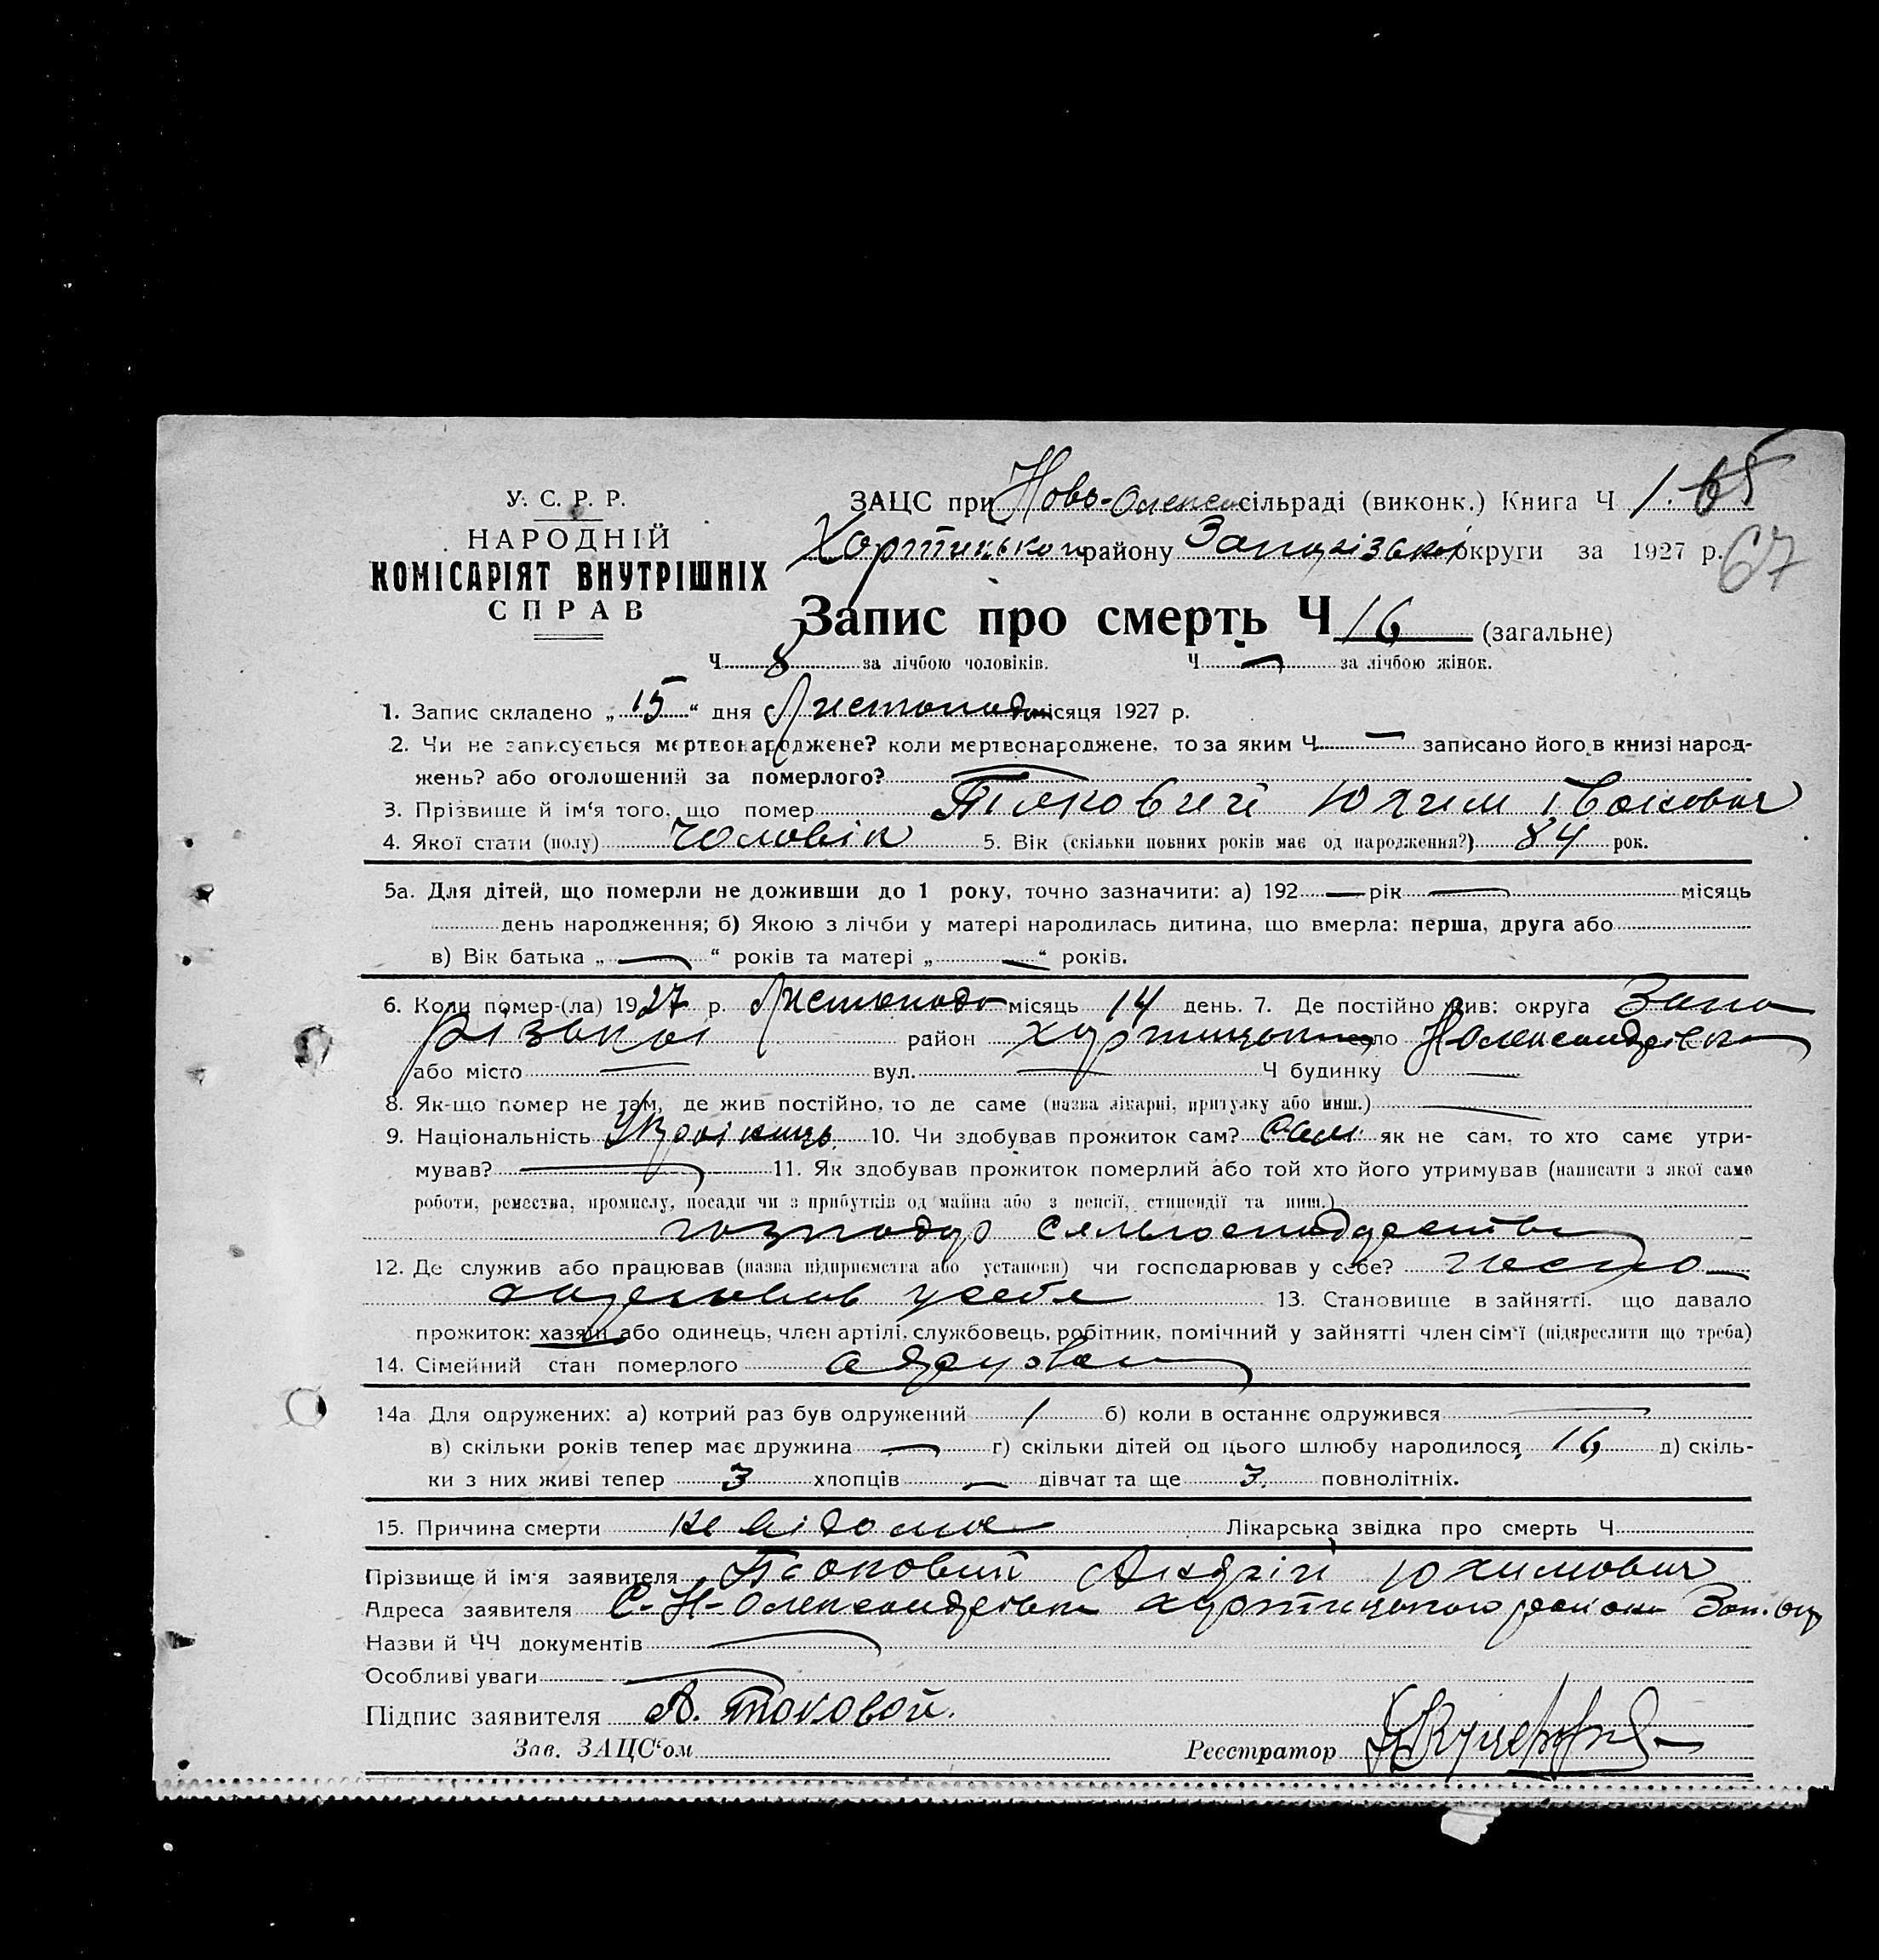 У. С. Р. Р.
НАРОДНІЙ
КОМІСАРІЯТ ВНУТРІШНІХ
СПРАВ
ЗАЦС при Ново-Олекса сільраді (виконк.) Книга Ч 1. 65
Хортицького району Запорізької округи за 1927 р. 67
Запис про смерть Ч 16 (загальне)
Ч 8 за лічбою чоловіків. Ч — за лічбою жінок.
1. Запис складено „15“ дня Листопада місяця 1927 р.
2. Чи не записується мертвонароджене? коли мертвонароджене, то за яким Ч — записано його в книзі народ-
жень? або оголошений за померлого? —
3. Прізвище й ім'я того, що помер Токовий Юхим Іванович
4. Якої стати (полу) Чоловік 5. Вік (скільки повних років має од народження?) 84 рок.
5а. Для дітей, що померли не доживши до 1 року, точно зазначити: а) 192 — рік — місяць
день народження; б) Якою з лічби у матері народилась дитина, що вмерла: перша, друга або
в) Вік батька „ — “ років та матері „ — “ років.
6. Коли помер-(ла) 1927 р. Листопада місяць 14 день. 7. Де постійно жив: округа Запо
різької район Хортицький село Н Олександрівка
або місто — вул. — Ч будинку —
8. Як-що помер не там, де жив постійно, то де саме (назва лікарні, притулку або инш.) —
9. Національність Українець 10. Чи здобував прожиток сам? Сам як не сам, то хто саме утри-
мував? — 11. Як здобував прожиток померлий або той хто його утримував (написати з якої саме
роботи, ремества, промислу, посади чи з прибутків од майна або з пенсії, стипендії та инш.)
12. Де служив або працював (назва підприємства або установи) чи господарював у себе? госпо
дарював у себе 13. Становище в зайнятті, що давало
прожиток: хазяїн або одинець, член артілі, службовець, робітник, помічний у зайнятті член сім'ї (підкреслити що треба)
14. Сімейний стан померлого
14а Для одружених: а) котрий раз був одружений 1 б) коли в останнє одружився —
в) скільки років тепер має дружина — г) скільки дітей од цього шлюбу народилося 16 д) скіль-
ки з них живі тепер 3 хлопців — дівчат та ще 3 повнолітніх.
15. Причина смерти невідома Лікарська звідка про смерть Ч
Прізвище й ім'я заявителя Токовий Андрій Юхимович
Адреса заявителя С. Н-Олександрівка Хортицького району Зап. Окр
Назви й ЧЧ документів —
Особливі уваги —
Підпис заявителя А. Токовой.
Зав. ЗАЦС'ом Реєстратор